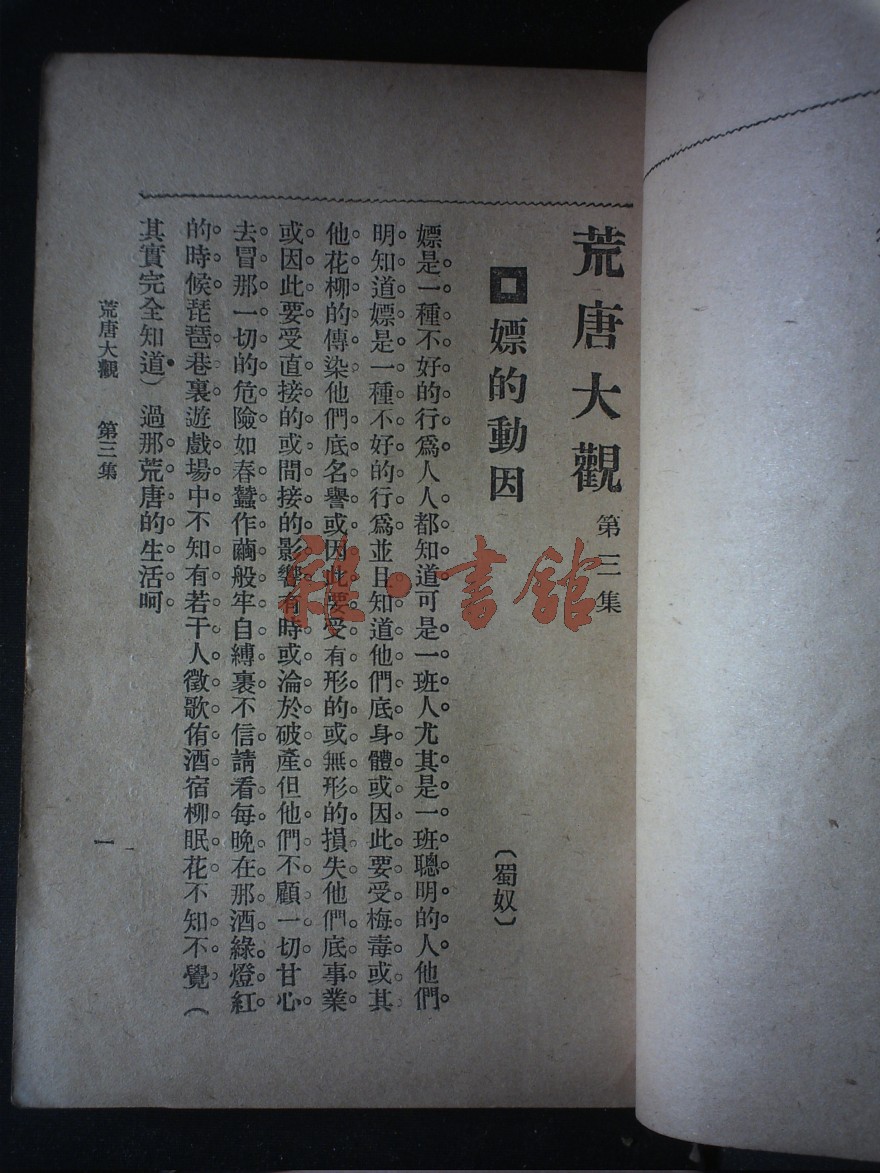 荒唐大觀 第三集
嫖的動因 （蜀奴）
嫖是一種不好的行爲人人都知道可是一班人尤其是一班聰明的人他們
明知道嫖是一種不好的行爲並且知道他們底身體或因此要受梅毒或其
他花柳的傳染他們底名譽或因此要受有形的或無形的損失他們底事業
或因此要受直接的或間接的影響有時或淪於破產但他們不顧一切甘心
去冒那一切的危險如春蠶作繭般牢自縛裹不信請看每晚在那酒綠燈紅
的時候琵琶巷裏遊戲場中不知有若干人徵歌侑酒宿柳眠花不知不覺（
其實完全知道）過那荒唐的生活呵
荒唐大觀 第三集
一
雜·書館